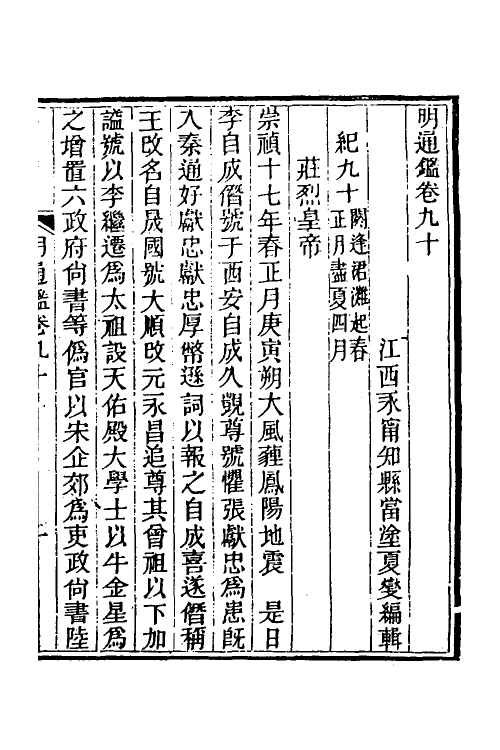 明通鑑卷九十
江西永甯知縣當塗夏燮編輯
紀九十閼逢涒灘起春正月盡夏四月
莊烈皇帝
崇禎十七年春正月庚寅朔大風霾鳳陽地震　是日
李自成僭號于西安自成久覬尊號懼張獻忠爲患旣
入秦通好獻忠獻忠厚幣遜詞以報之自成喜遂僭稱
王改名自晟國號大順改元永昌追尊其曾祖以下加
諡號以李繼遷爲太祖設天佑殿大學士以牛金星爲
之增置六政府尙書等僞官以宋企郊爲吏政尙書陸
明通鑑卷九十
一